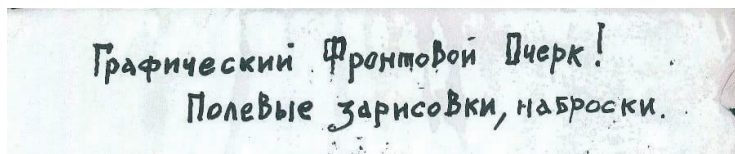 Графический Фронтовой Очерк!
Полевые зарисовки, наброски.